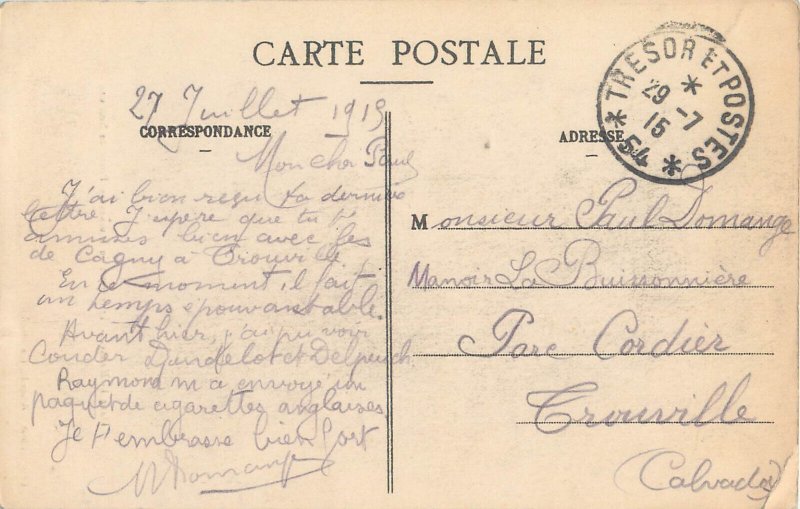 CARTE POSTALE
TRESOR ET POSTES
29 -7
15
* 54 *
27 Juillet 1915
CORRESPONDANCE
ADRESSE
Mon cher Paul
J'ai bien reçu ta dernière
lettre. J'espère que tu t'
amuses bien avec les
de Cagny à Trouville
En ce moment, il fait
un temps épouvantable.
Avant hier, j'ai pu voir
Couder Dandelot et Delpuech
Raymond m'a envoyé un
paquet de cigarettes anglaises
Je t'embrasse bien fort
Monsieur Paul Domange
Manoir La Buissonnière
Parc Cordier
Trouville
(Calvados)